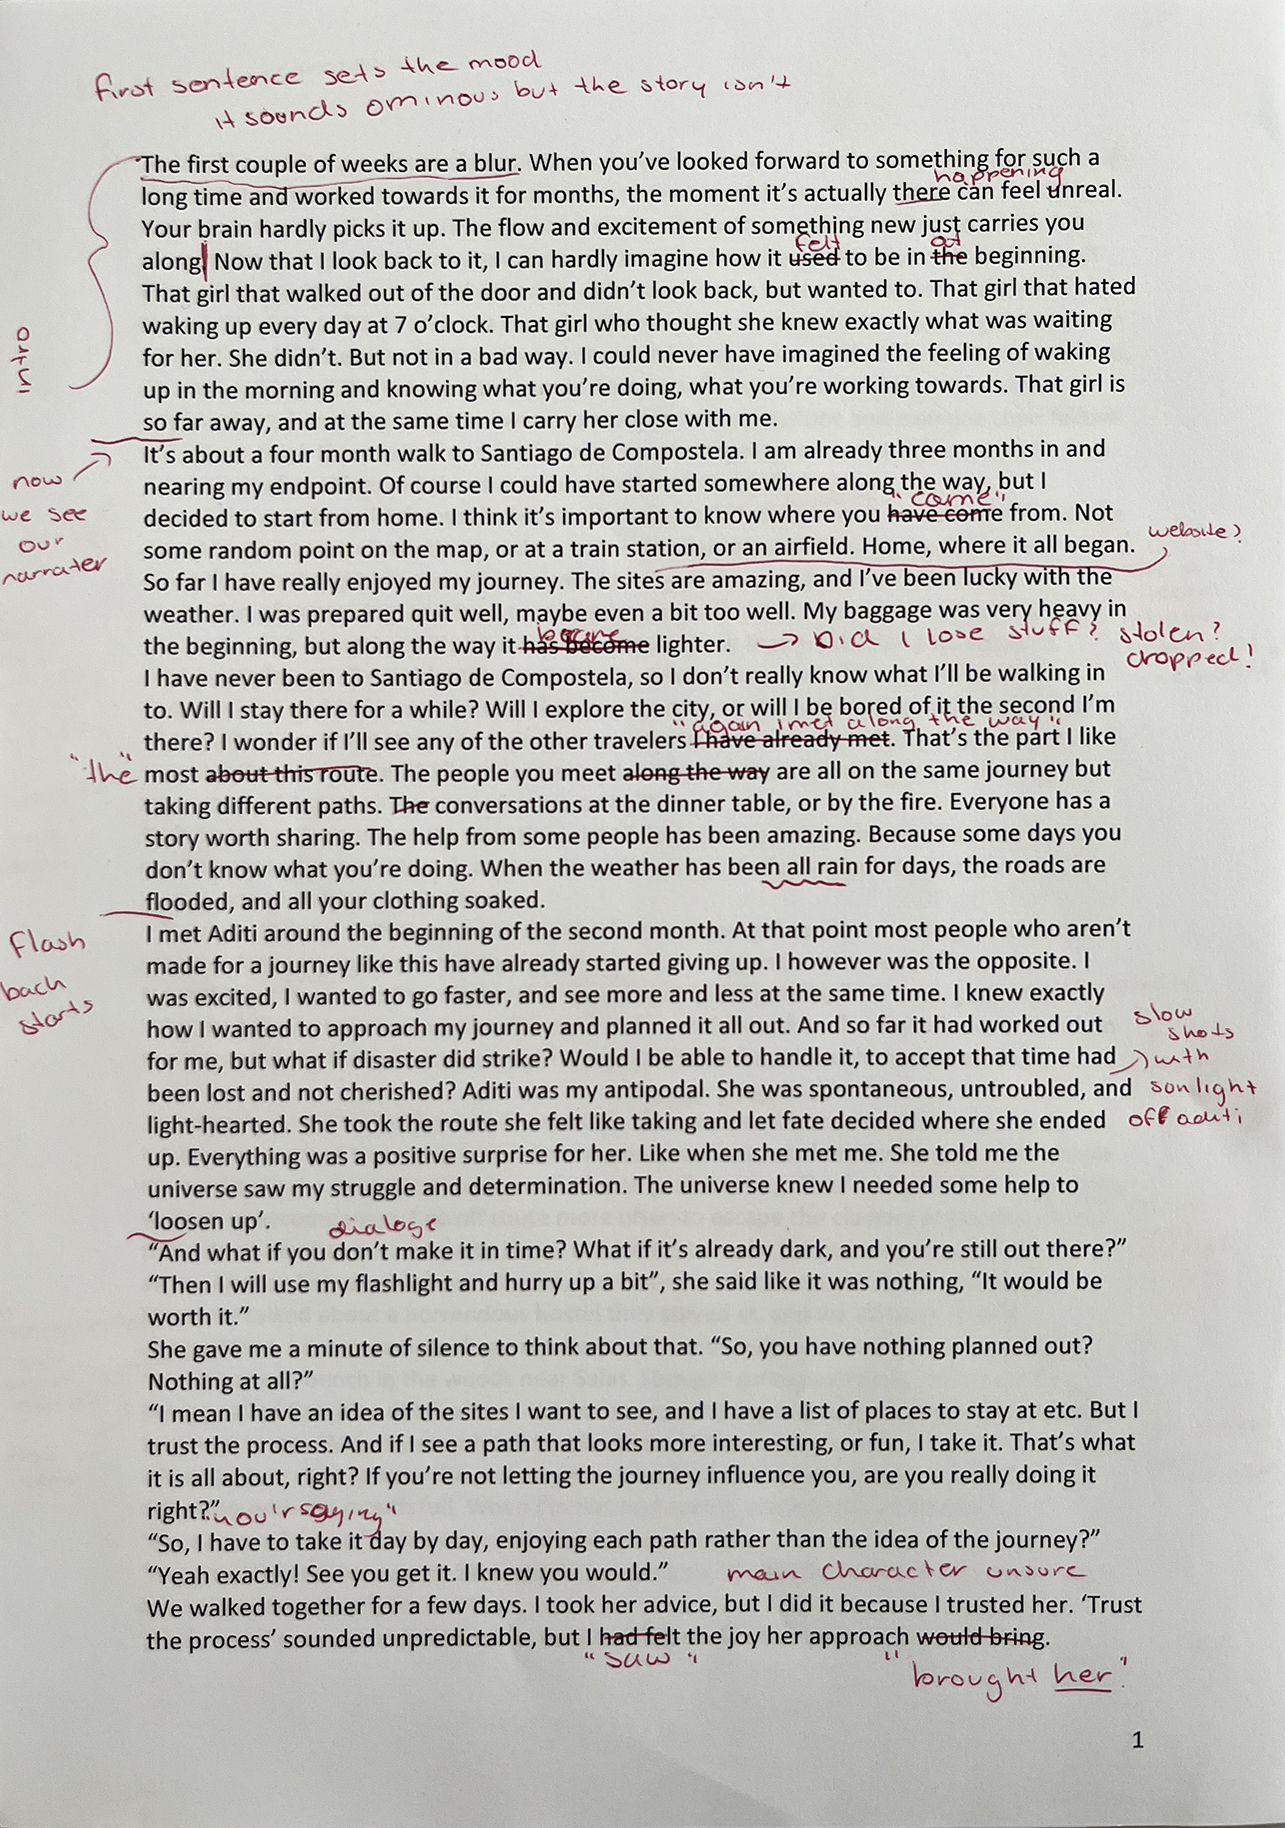 first sentence sets the mood
it sounds ominous but the story isn't
The first couple of weeks are a blur. When you’ve looked forward to something for such a
happening
long time and worked towards it for months, the moment it’s actually there can feel unreal.
Your brain hardly picks it up. The flow and excitement of something new just carries you
felt at
along. Now that I look back to it, I can hardly imagine how it used to be in the beginning.
That girl that walked out of the door and didn’t look back, but wanted to. That girl that hated
waking up every day at 7 o’clock. That girl who thought she knew exactly what was waiting
intro
for her. She didn’t. But not in a bad way. I could never have imagined the feeling of waking
up in the morning and knowing what you’re doing, what you’re working towards. That girl is
so far away, and at the same time I carry her close with me.
It’s about a four month walk to Santiago de Compostela. I am already three months in and
now
nearing my endpoint. Of course I could have started somewhere along the way, but I
"came"
we see
decided to start from home. I think it’s important to know where you have come from. Not
our
some random point on the map, or at a train station, or an airfield. Home, where it all began.
website?
narrater
So far I have really enjoyed my journey. The sites are amazing, and I’ve been lucky with the
weather. I was prepared quit well, maybe even a bit too well. My baggage was very heavy in
became
the beginning, but along the way it has become lighter.
→ Did I lose stuff? stolen?
dropped!
I have never been to Santiago de Compostela, so I don’t really know what I’ll be walking in
to. Will I stay there for a while? Will I explore the city, or will I be bored of it the second I’m
"again i met along the way"
there? I wonder if I’ll see any of the other travelers I have already met. That’s the part I like
"the"
most about this route. The people you meet along the way are all on the same journey but
taking different paths. The conversations at the dinner table, or by the fire. Everyone has a
story worth sharing. The help from some people has been amazing. Because some days you
don’t know what you’re doing. When the weather has been all rain for days, the roads are
flooded, and all your clothing soaked.
Flash
back
starts
I met Aditi around the beginning of the second month. At that point most people who aren’t
made for a journey like this have already started giving up. I however was the opposite. I
was excited, I wanted to go faster, and see more and less at the same time. I knew exactly
how I wanted to approach my journey and planned it all out. And so far it had worked out
for me, but what if disaster did strike? Would I be able to handle it, to accept that time had
been lost and not cherished? Aditi was my antipodal. She was spontaneous, untroubled, and
light-hearted. She took the route she felt like taking and let fate decided where she ended
slow
shots
with
sonlight
off aditi
up. Everything was a positive surprise for her. Like when she met me. She told me the
universe saw my struggle and determination. The universe knew I needed some help to
‘loosen up’.
dialoge
“And what if you don’t make it in time? What if it’s already dark, and you’re still out there?”
“Then I will use my flashlight and hurry up a bit”, she said like it was nothing, “It would be
worth it.”
She gave me a minute of silence to think about that. “So, you have nothing planned out?
Nothing at all?”
“I mean I have an idea of the sites I want to see, and I have a list of places to stay at etc. But I
trust the process. And if I see a path that looks more interesting, or fun, I take it. That’s what
it is all about, right? If you’re not letting the journey influence you, are you really doing it
right?”
"you'r saying"
“So, I have to take it day by day, enjoying each path rather than the idea of the journey?”
“Yeah exactly! See you get it. I knew you would.”
main character unsure
We walked together for a few days. I took her advice, but I did it because I trusted her. ‘Trust
the process’ sounded unpredictable, but I had felt the joy her approach would bring.
"saw"
"brought her"
1